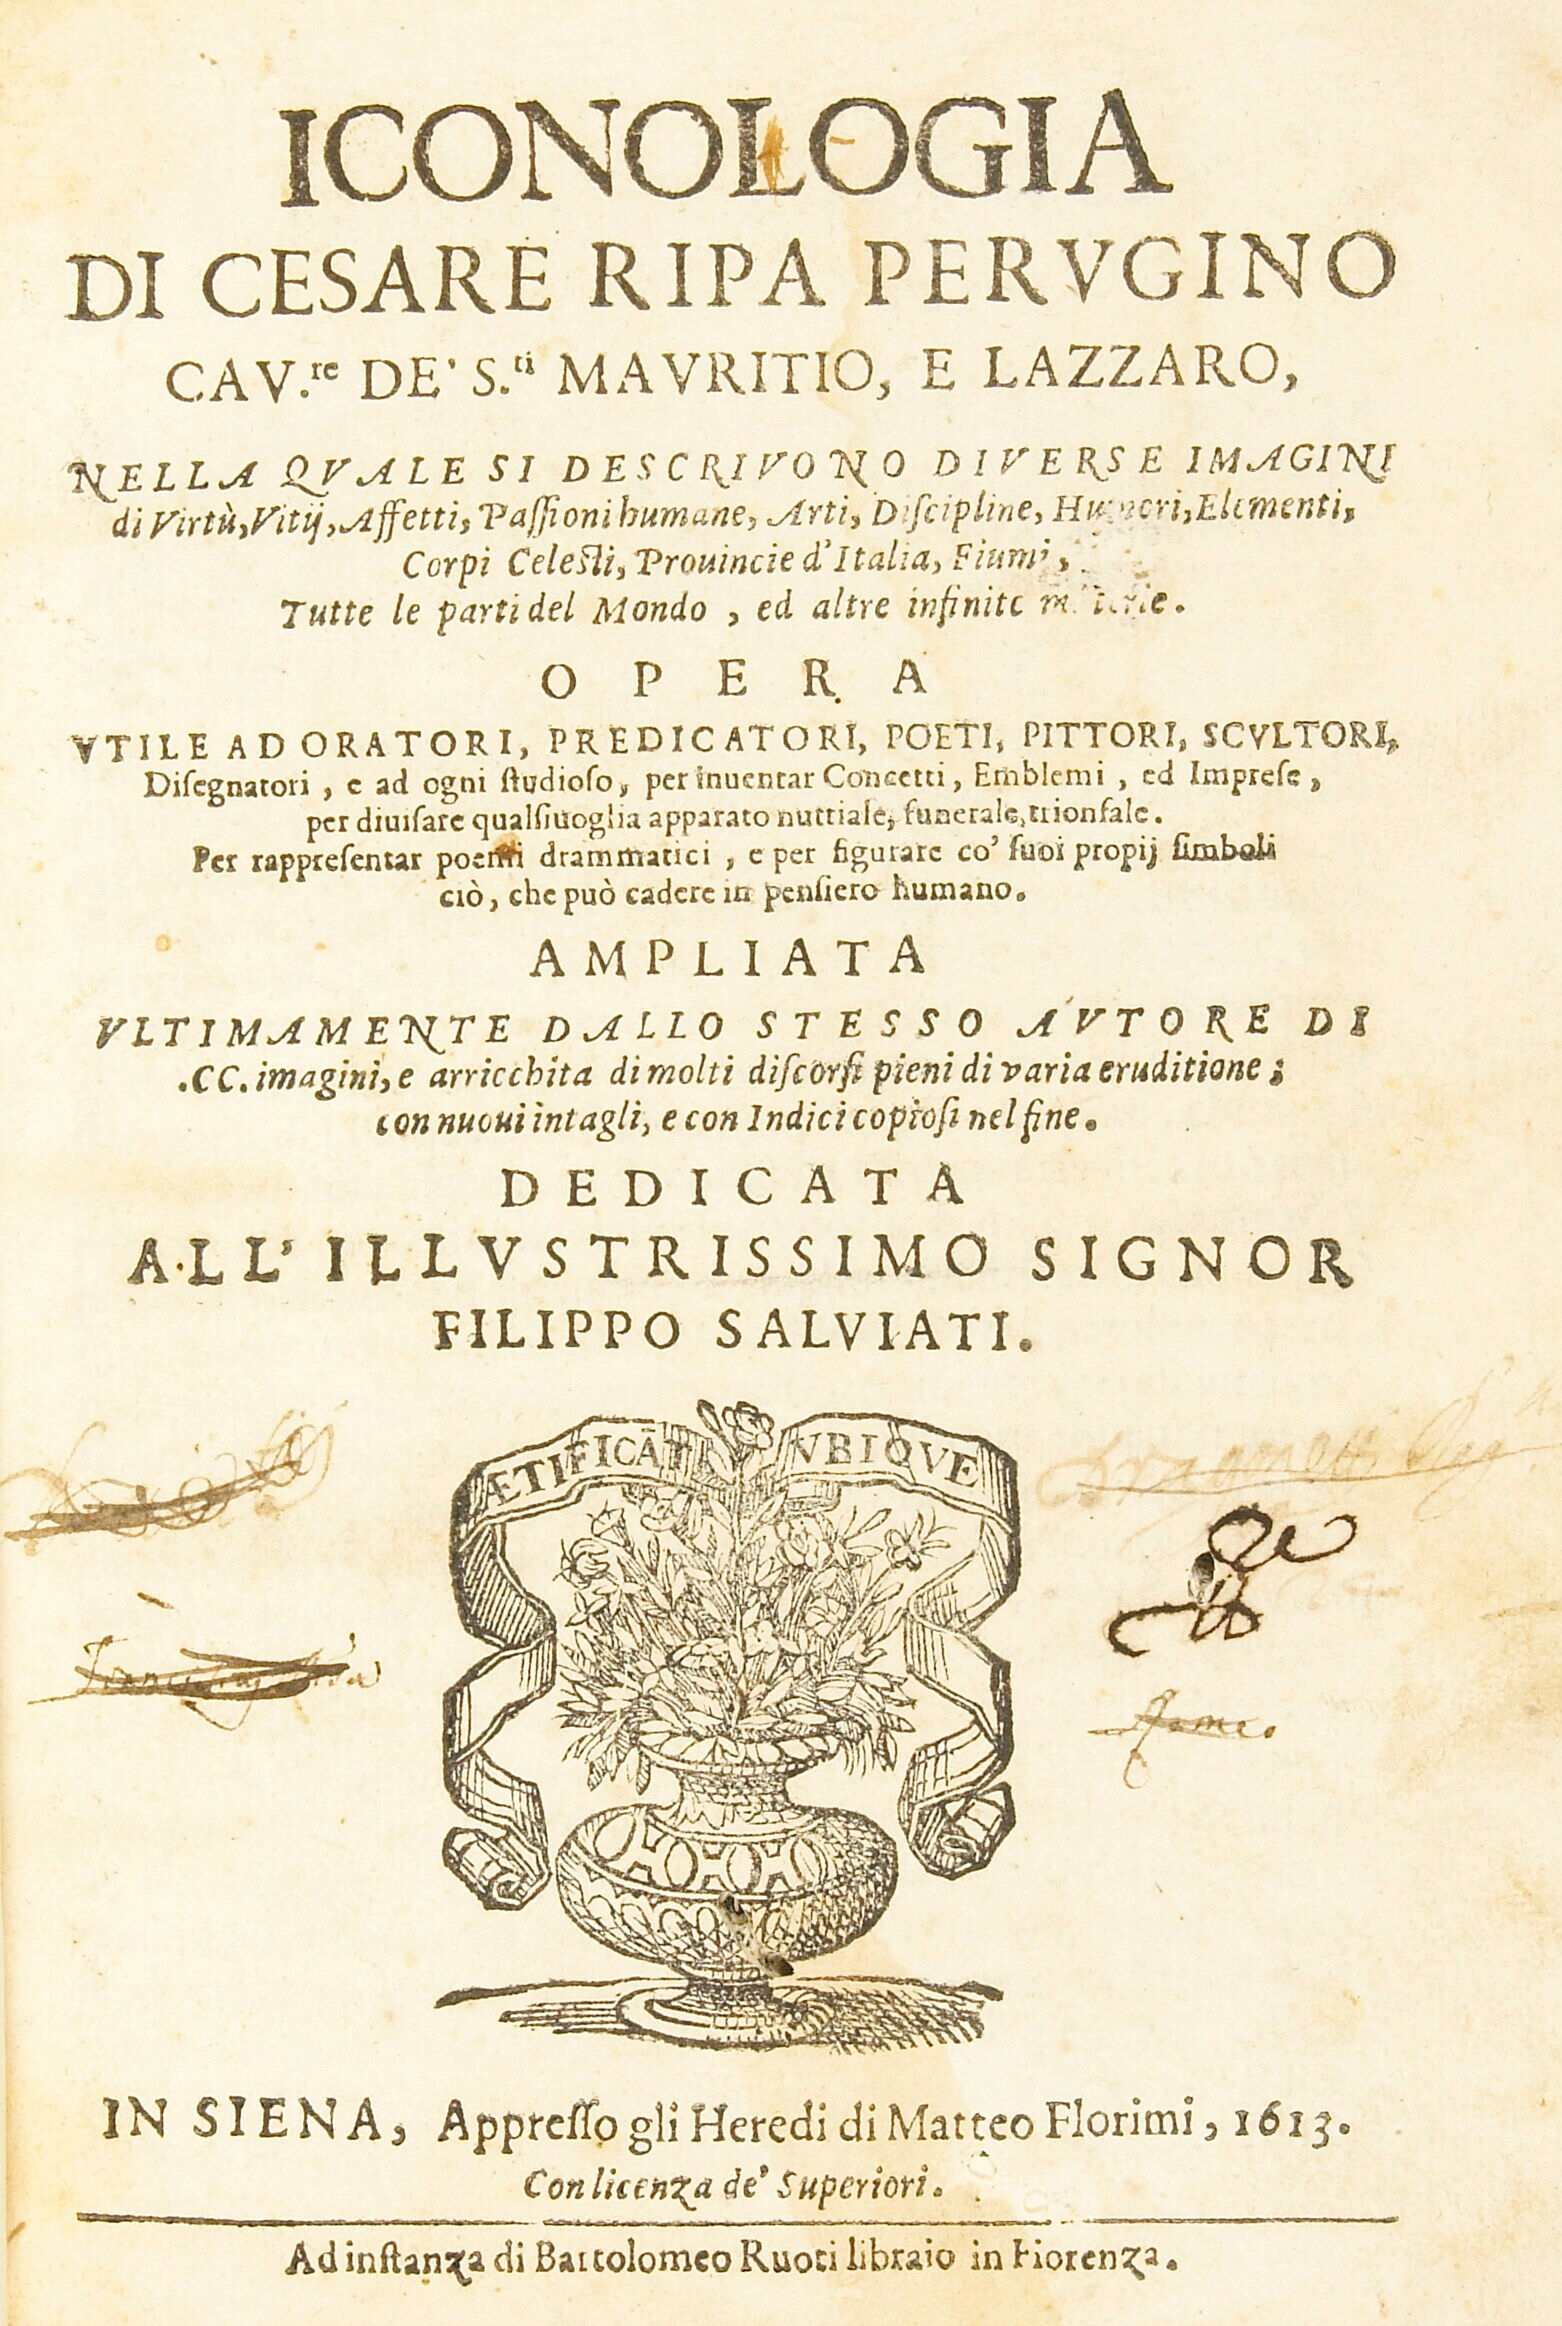 ICONOLOGIA
DI CESARE RIPA PERVGINO
CAV.re DE' S.ti MAVRITIO, E LAZZARO,
NELLA QVALE SI DESCRIVONO DIVERSE IMAGINI
di Virtù, Vitij, Affetti, Paſſioni humane, Arti, Diſcipline, Humori, Elementi,
Corpi Celeſti, Prouincie d'Italia, Fiumi,
Tutte le parti del Mondo, ed altre infinite materie.
OPERA
VTILE AD ORATORI, PREDICATORI, POETI, PITTORI, SCVLTORI,
Diſegnatori, e ad ogni ſtudioſo, per inuentar Concetti, Emblemi, ed Impreſe,
per diuiſare qualſiuoglia apparato nuttiale, funerale, trionfale.
Per rappreſentar poemi drammatici, e per figurare co' ſuoi propij ſimboli
ciò, che può cadere in penſiero humano.
AMPLIATA
VLTIMAMENTE DALLO STESSO AVTORE DI
.CC. imagini, e arricchita di molti diſcorſi pieni di varia eruditione;
con nuoui intagli, e con Indici copioſi nel fine.
DEDICATA
ALL' ILLVSTRISSIMO SIGNOR
FILIPPO SALVIATI.
ÆTIFICĀT VBIQVE
IN SIENA, Appreſſo gli Heredi di Matteo Florimi, 1613.
Con licenza de' Superiori.
Ad inſtanza di Bartolomeo Ruoti libraio in Fiorenza.